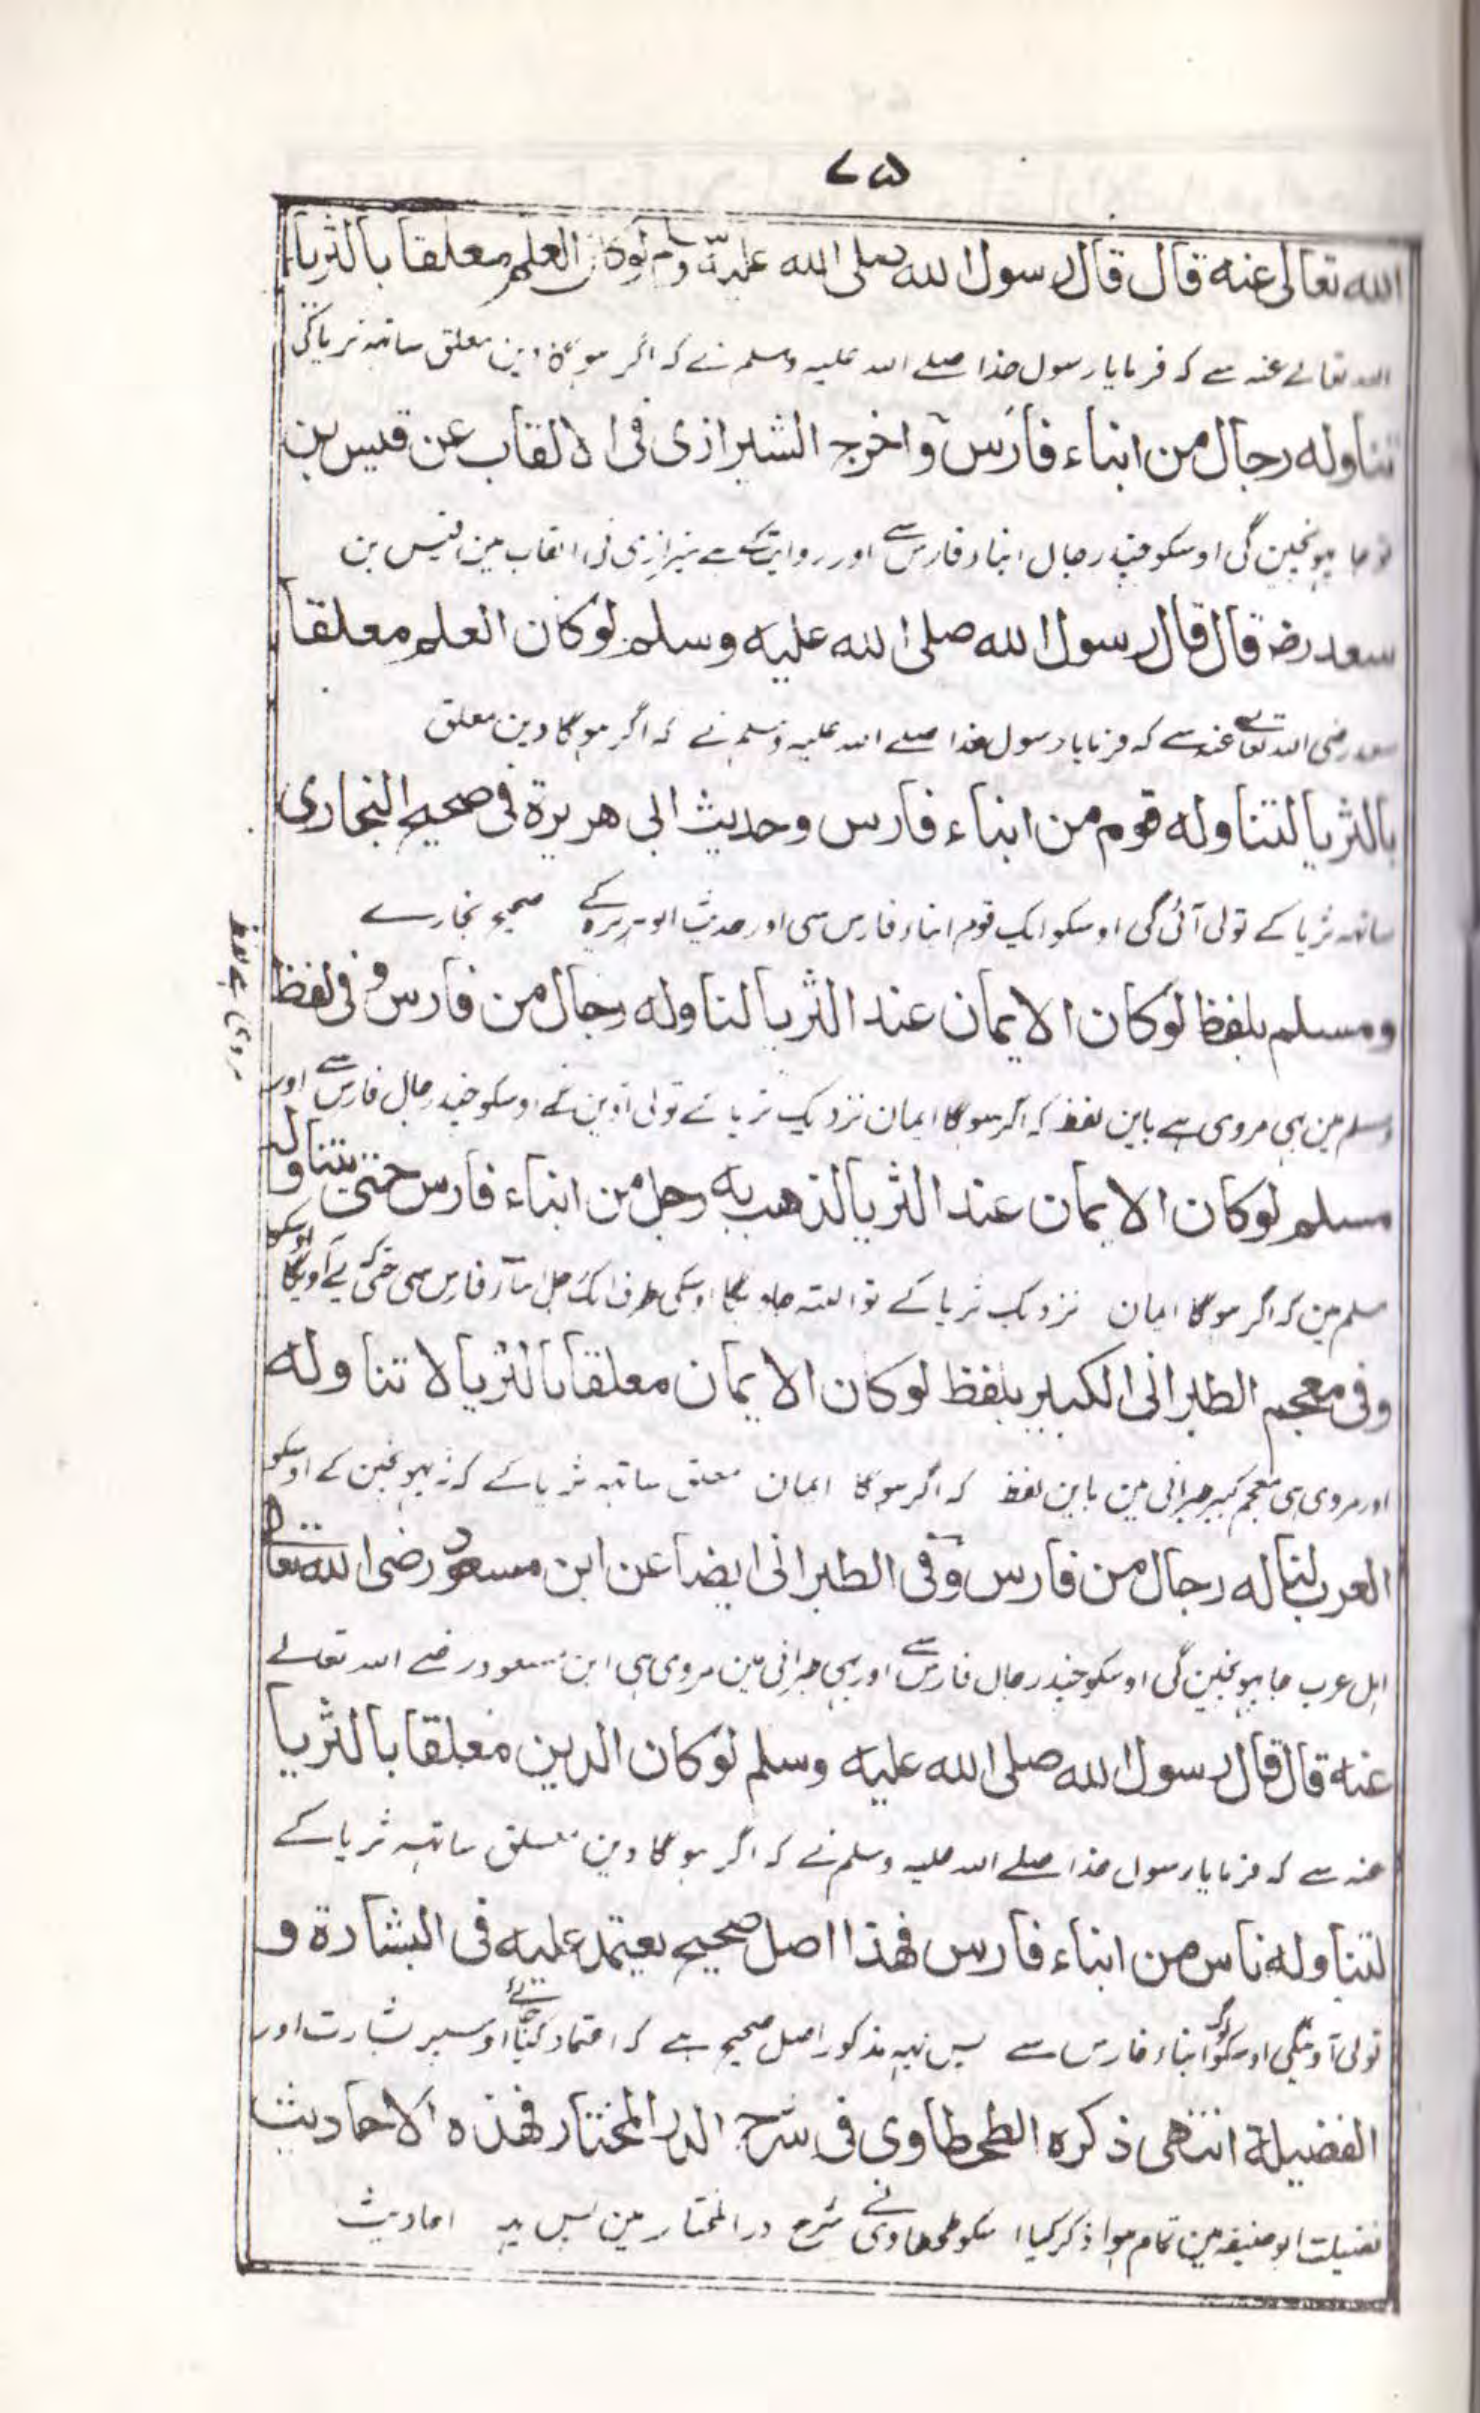 ۷۵
الله تعالی عنه قال قال رسول الله صلی الله علیه وسلم لوکان العلم معلقا بالثریا
اللہ تعالے عنہ سے کہ فرمایا رسول خدا صلے اللہ علیہ وسلم نے کہ اگر ہوگا دین معلق ساتہہ ثریا کی
تناوله رجال من ابناء فارس واخرج الشیرازی فی الالقاب عن قیس بن
جا پہونچین گی اوسکو چند رجال ابناء فارس سے اور روایت کی ہے شیرازی نی القاب مین قیس بن
سعد رضـ قال قال رسول الله صلی الله علیه وسلم لوکان العلم معلقا
سعد رضی اللہ تعالے عنہ سے کہ فرمایا رسول خدا صلے اللہ علیہ وسلم نے کہ اگر ہوگا دین معلق
بالثریا لتناوله قوم من ابناء فارس وحدیث ابی هریرة فی صحیح البخاری
ساتہہ ثریا کے تولی آئی گی اوسکو ایک قوم ابناء فارس سی اور حدیث ابو ہریرہ کے صحیح بخارے
ومسلم بلفظ لوکان الایمان عند الثریا لناوله رجال من فارس وفی لفظ
مسلم مین ہی مروی ہے باین لفظ کہ اگر ہوگا ایمان نزدیک ثریا کے تولی آوین گے اوسکو چند رجال فارس سے اور
مروی ہے بلفظ
مسلم لوکان الایمان عند الثریا لذهب به رجل من ابناء فارس حتی یتناوله
مسلم مین کہ اگر ہوگا ایمان نزدیک ثریا کے تو البتہ جاویگا اوسکی طرف ایک رجل ابناء فارس سی حتی کہ لے آویگا اوسکو
وفی معجم الطبرانی الکبیر بلفظ لوکان الایمان معلقا بالثریا لا تناوله
اور مروی ہی معجم کبیر طبرانی مین باین لفظ کہ اگر ہوگا ایمان معلق ساتہہ ثریا کے کہ نہ پہونچین کے اوسکو
العرب لناله رجال من فارس وفی الطبرانی ایضا عن ابن مسعود رضی الله تعالی
اہل عرب جا پہونچین گی اوسکو چند رجال فارس سے اور بہی طبرانی مین مروی ہی ابن مسعود رضے اللہ تعالے
عنه قال قال رسول الله صلی الله علیه وسلم لوکان الدین معلقا بالثریا
عنہ سے کہ فرمایا رسول خدا صلے اللہ علیہ وسلم نے کہ اگر ہوگا دین معلق ساتہہ ثریا کے
لتناوله ناس من ابناء فارس فهذا اصل صحیح یعتمد علیه فی البشارة و
تولی آوینگی اوسکو ابناء فارس سے پس یہہ مذکور اصل صحیح ہے کہ اعتماد کیا اوسپر بشارت اور
الفضیلة انتهی ذکره الطحطاوی فی شرح الدر المختار فهذه الاحادیث
فضیلت ابو حنیفہ مین تمام ہوا ذکر کیا اسکو طحطاوی نے شرح در المختار مین پس یہہ احادیث